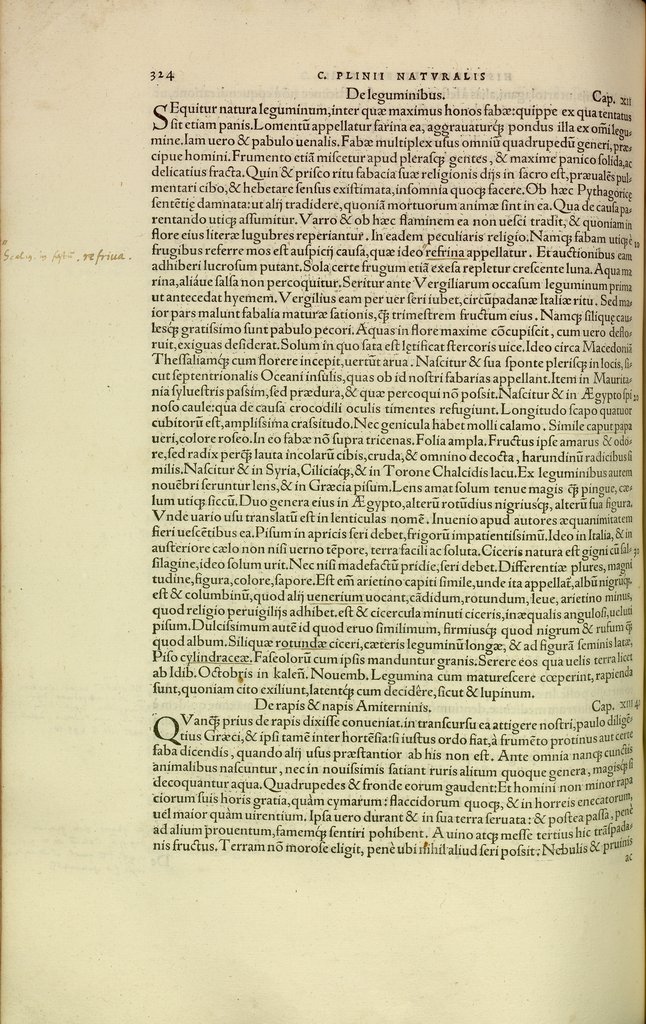 324 C. PLINII NATVRALIS
De leguminibus. Cap. XII
SEquitur natura leguminum, inter quæ maximus honos fabæ: quippe ex qua tentatus
sit etiam panis. Lomentũ appellatur farina ea, aggrauaturq́; pondus illa ex om̃i legu-
mine. Iam uero & pabulo uenalis. Fabæ multiplex usus omniũ quadrupedũ generi, præ-
cipue homini. Frumento etiã miscetur apud plerasq; gentes, & maxime panico solida, ac
delicatius fracta. Quin & prisco ritu fabacia suæ religionis dijs in sacro est, præualẽs pul-
mentari cibo, & hebetare sensus existimata, insomnia quoq; facere. Ob hæc Pythagorice
sentẽtię damnata: ut alij tradidere, quoniã mortuorum animæ sint in ea. Qua de causa pa-
rentando utiq; assumitur. Varro & ob hæc flaminem ea non uesci tradit, & quoniam in
flore eius literæ lugubres reperiantur. In eadem peculiaris religio. Namq; fabam utiq; è 10
frugibus referre mos est auspicij causa, quæ ideo refrina appellatur. Et auctionibus eam
refriua.
adhiberi lucrosum putant. Sola certe frugum etiã exesa repletur crescente luna. Aqua ma
rina, aliáue salsa non percoquitur. Seritur ante Vergiliarum occasum leguminum prima
ut antecedat hyemem. Vergilius eam per uer seri iubet, circũpadanæ Italiæ ritu. Sed ma-
ior pars malunt fabalia maturæ sationis, q̃; trimestrem fructum eius. Namq; siliquæ cau-
lesq; gratissimo sunt pabulo pecori. Aquas in flore maxime cõcupiscit, cum uero deflo-
ruit, exiguas desiderat. Solum in quo sata est lętificat stercoris uice. Ideo circa Macedoniã
Thessaliamq; cum florere incepit, uertũt arua. Nascitur & sua sponte plerisq; in locis, si-
cut septentrionalis Oceani insulis, quas ob id nostri fabarias appellant. Item in Maurita-
nia syluestris passim, sed prædura, & quæ percoqui nõ possit. Nascitur & in Ægypto spi 20
noso caule: qua de causa crocodili oculis timentes refugiunt. Longitudo scapo quatuor
cubitorũ est, amplissima crassitudo. Nec genicula habet molli calamo. Simile caput papa
ueri, colore roseo. In eo fabæ nõ supra tricenas. Folia ampla. Fructus ipse amarus & odo-
re, sed radix perq̃; lauta incolarũ cibis, cruda, & omnino decocta, harundinũ radicibus si
milis. Nascitur & in Syria, Ciliciaq;, & in Torone Chalcidis lacu. Ex leguminibus autem
nouẽbri seruntur lens, & in Græcia pisum. Lens amat solum tenue magis q̃; pingue, cæ-
lum utiq; siccũ. Duo genera eius in Ægypto, alterũ rotũdius nigriusq;, alterũ sua figura.
Vnde uario usu translatũ est in lenticulas nomẽ. Inuenio apud autores æquanimitatem
fieri uescẽtibus ea. Pisum in apricis seri debet, frigorũ impatientissimũ. Ideo in Italia, & in
austeriore cælo non nisi uerno tẽpore, terra facili ac soluta. Ciceris natura est gigni cũ sal- 30
silagine, ideo solum urit. Nec nisi madefactũ pridie, seri debet. Differentiæ plures, magni
tudine, figura, colore, sapore. Est em̃ arietino capiti simile, unde ita appellat̃, albũ nigrũq;.
est & columbinũ, quod alij uenerium uocant, cãdidum, rotundum, leue, arietino minus,
quod religio peruigilijs adhibet. est & cicercula minuti ciceris, inæqualis angulosi, ueluti
pisum. Dulcissimum autẽ id quod eruo simillimum, firmiusq; quod nigrum & rufum q̃
quod album. Siliquæ rotundæ ciceri, cæteris leguminũ longæ, & ad figurã seminis latæ,
Piso cylindraceæ. Faseolorũ cum ipsis manduntur granis. Serere eos qua uelis terra licet
ab Idib. Octobris in kaleñ. Nouemb. Legumina cum maturescere cœperint, rapienda
sunt, quoniam cito exiliunt, latentq; cum decidêre, sicut & lupinum.
De rapis & napis Amiterninis. Cap. XIII 41
QVanq̃; prius de rapis dixisse conueniat. in transcursu ea attigere nostri, paulo diligẽ-
tius Græci, & ipsi tamẽ inter hortẽsia: si iustus ordo fiat, à frumẽto protinus aut certe
faba dicendis, quando alij usus præstantior ab his non est. Ante omnia nanq; cunctis
animalibus nascuntur, nec in nouissimis satiant ruris alitum quoque genera, magisq; si
decoquantur aqua. Quadrupedes & fronde eorum gaudent: Et homini non minor rapa
ciorum suis horis gratia, quàm cymarum: flaccidorum quoq;, & in horreis enecatorum,
uel maior quàm uirentium. Ipsa uero durant & in sua terra seruata: & postea passa, penè
ad alium prouentum, famemq; sentiri pohibent. A uino atq; messe tertius hic trãspada-
nis fructus. Terram nõ morose eligit, penè ubi nihil aliud seri possit. Nebulis & pruinis
ac